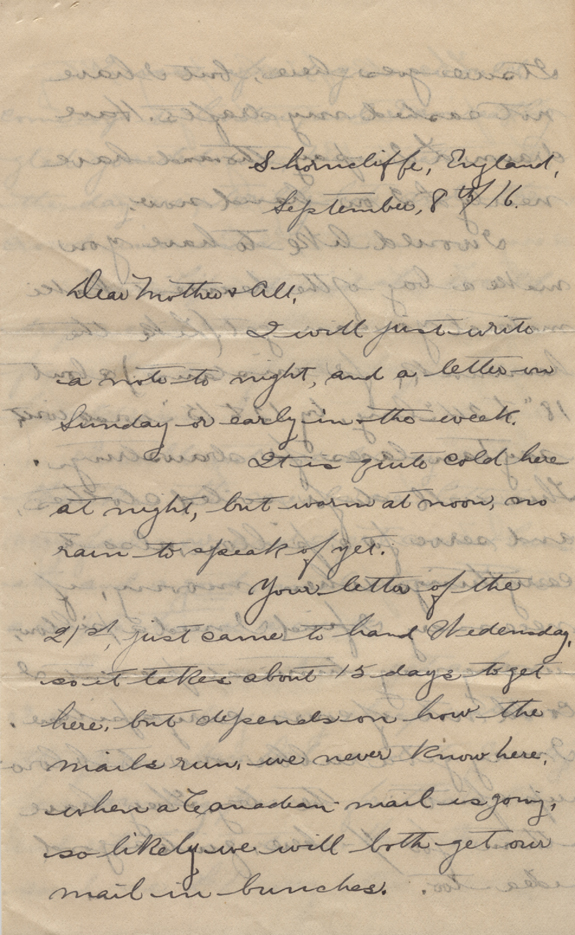 Shorncliffe, England,
September, 8th/16.
Dear Mother & All,
I will just write
a note to night, and a letter on
Sunday or early in the week.
It is quite cold here
at night, but warm at noon, no
rain to speak of yet.
Your letter of the
21st, just came to hand Wedensday,
so it takes about 15 days to get
here, but depends on how the
mails run, we never know here,
when a Canadian mail is going,
so likely we will both get our
mail in bunches.